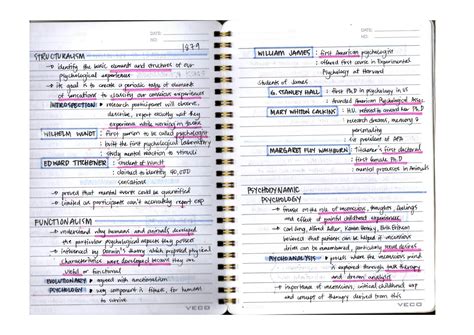 DATE:
NO:
1879
STRUCTURALISM
→ identify the basic elements and structures of our
psychological experience
→ its goal is to create a periodic table of elements
of sensations to classify our conscious experiences
INTROSPECTION → research participants will observe,
describe, report exactly what they
experience while working in tasks
WILHELM WUNDT : first person to be called psychologist
: built the first psychological laboratory
: study mental reaction to stimuli
EDWARD TITCHENER : student of Wundt
: claimed to identify 40,000
sensations
→ proved that mental events could be quantified
→ limited as participants can't accurately report exp.
FUNCTIONALISM
→ understand why humans and animals developed
the particular psychological aspects they possess
→ introduced by Darwin's theory which proposed physical
characteristics were developed because they are
useful or functional
EVOLUTIONARY → agreed with functionalism
PSYCHOLOGY → key component is fitness, for humans
to survive
VECO
DATE:
NO:
WILLIAM JAMES : first American psychologist
: offered first course in Experimental
Psychology at Harvard
students of James
G. STANLEY HALL : first Ph.D in psychology in US
: founded American Psychological Assoc.
MARY WHITON CALKINS : H.U. refused to reward a Ph.D
: research dreams, memory &
personality
: 1st president of APA
MARGARET FLOY WASHBURN : Titchener's first doctoral
: first female Ph.D
: mental processes in Animals
PSYCHODYNAMIC
PSYCHOLOGY
→ focus on the role of unconscious, thoughts, feelings
and effect of painful childhood experiences
→ Carl Jung, Alfred Adler, Karen Horney, Erik Erikson
→ believed that patients can be helped if unconscious
drives can be remembered, particularly sexual desires
PSYCHOANALYSIS → process where the unconscious mind
is explored through talk therapy
and dream analysis
→ importance of unconscious, critical childhood exp
and concept of therapy derived from this
VECO